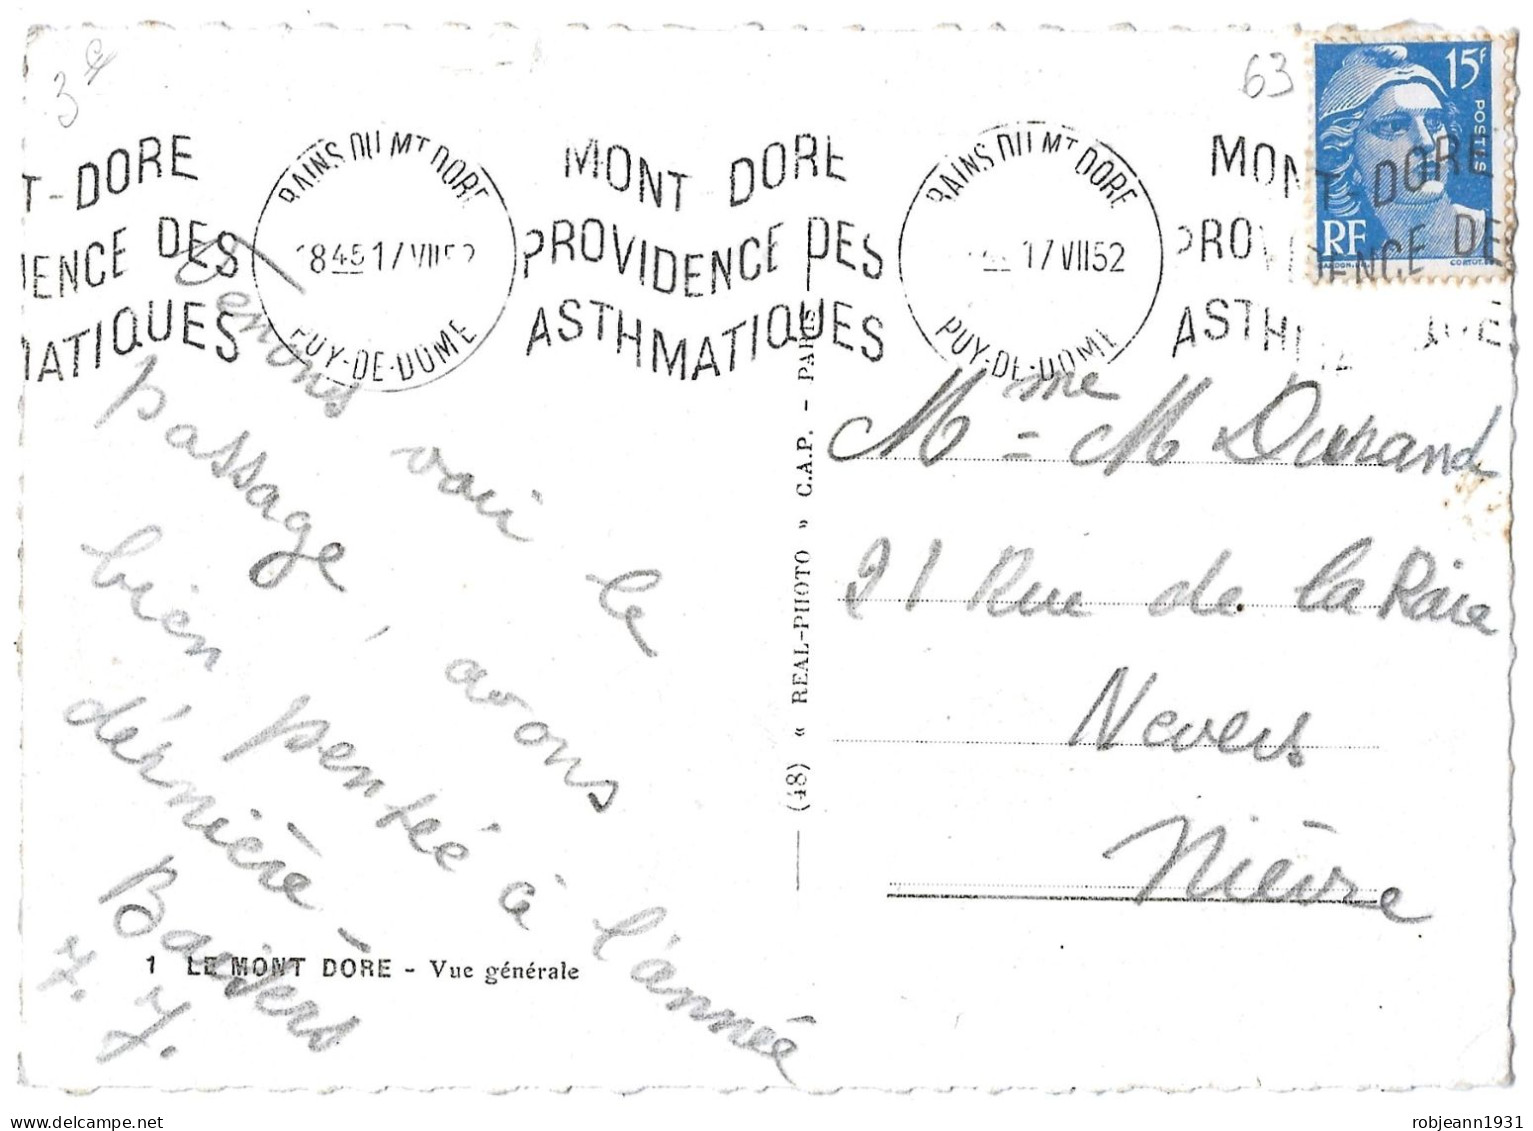 3€
63
15F
POSTES
RF
T-DORE
IENCE DES
MATIQUES
BAINS DU MT DORE
18 45 17 VII 52
PUY-DE-DOME
MONT DORE
PROVIDENCE DES
ASTHMATIQUES
BAINS DU MT DORE
17 VII 52
PUY-DE-DOME
MONT-DORE
PROVIDENCE DE
ASTHMA
Venons voir le
passage, avons
bien pensée à l'année
dérnière -
Baisers
J. J.
1 LE MONT DORE - Vue générale
(48) « REAL-PHOTO » C.A.P. - PARIS
Mme = M Durand
21 Rue de la Raie
Nevers
Nièvre
robjeann1931